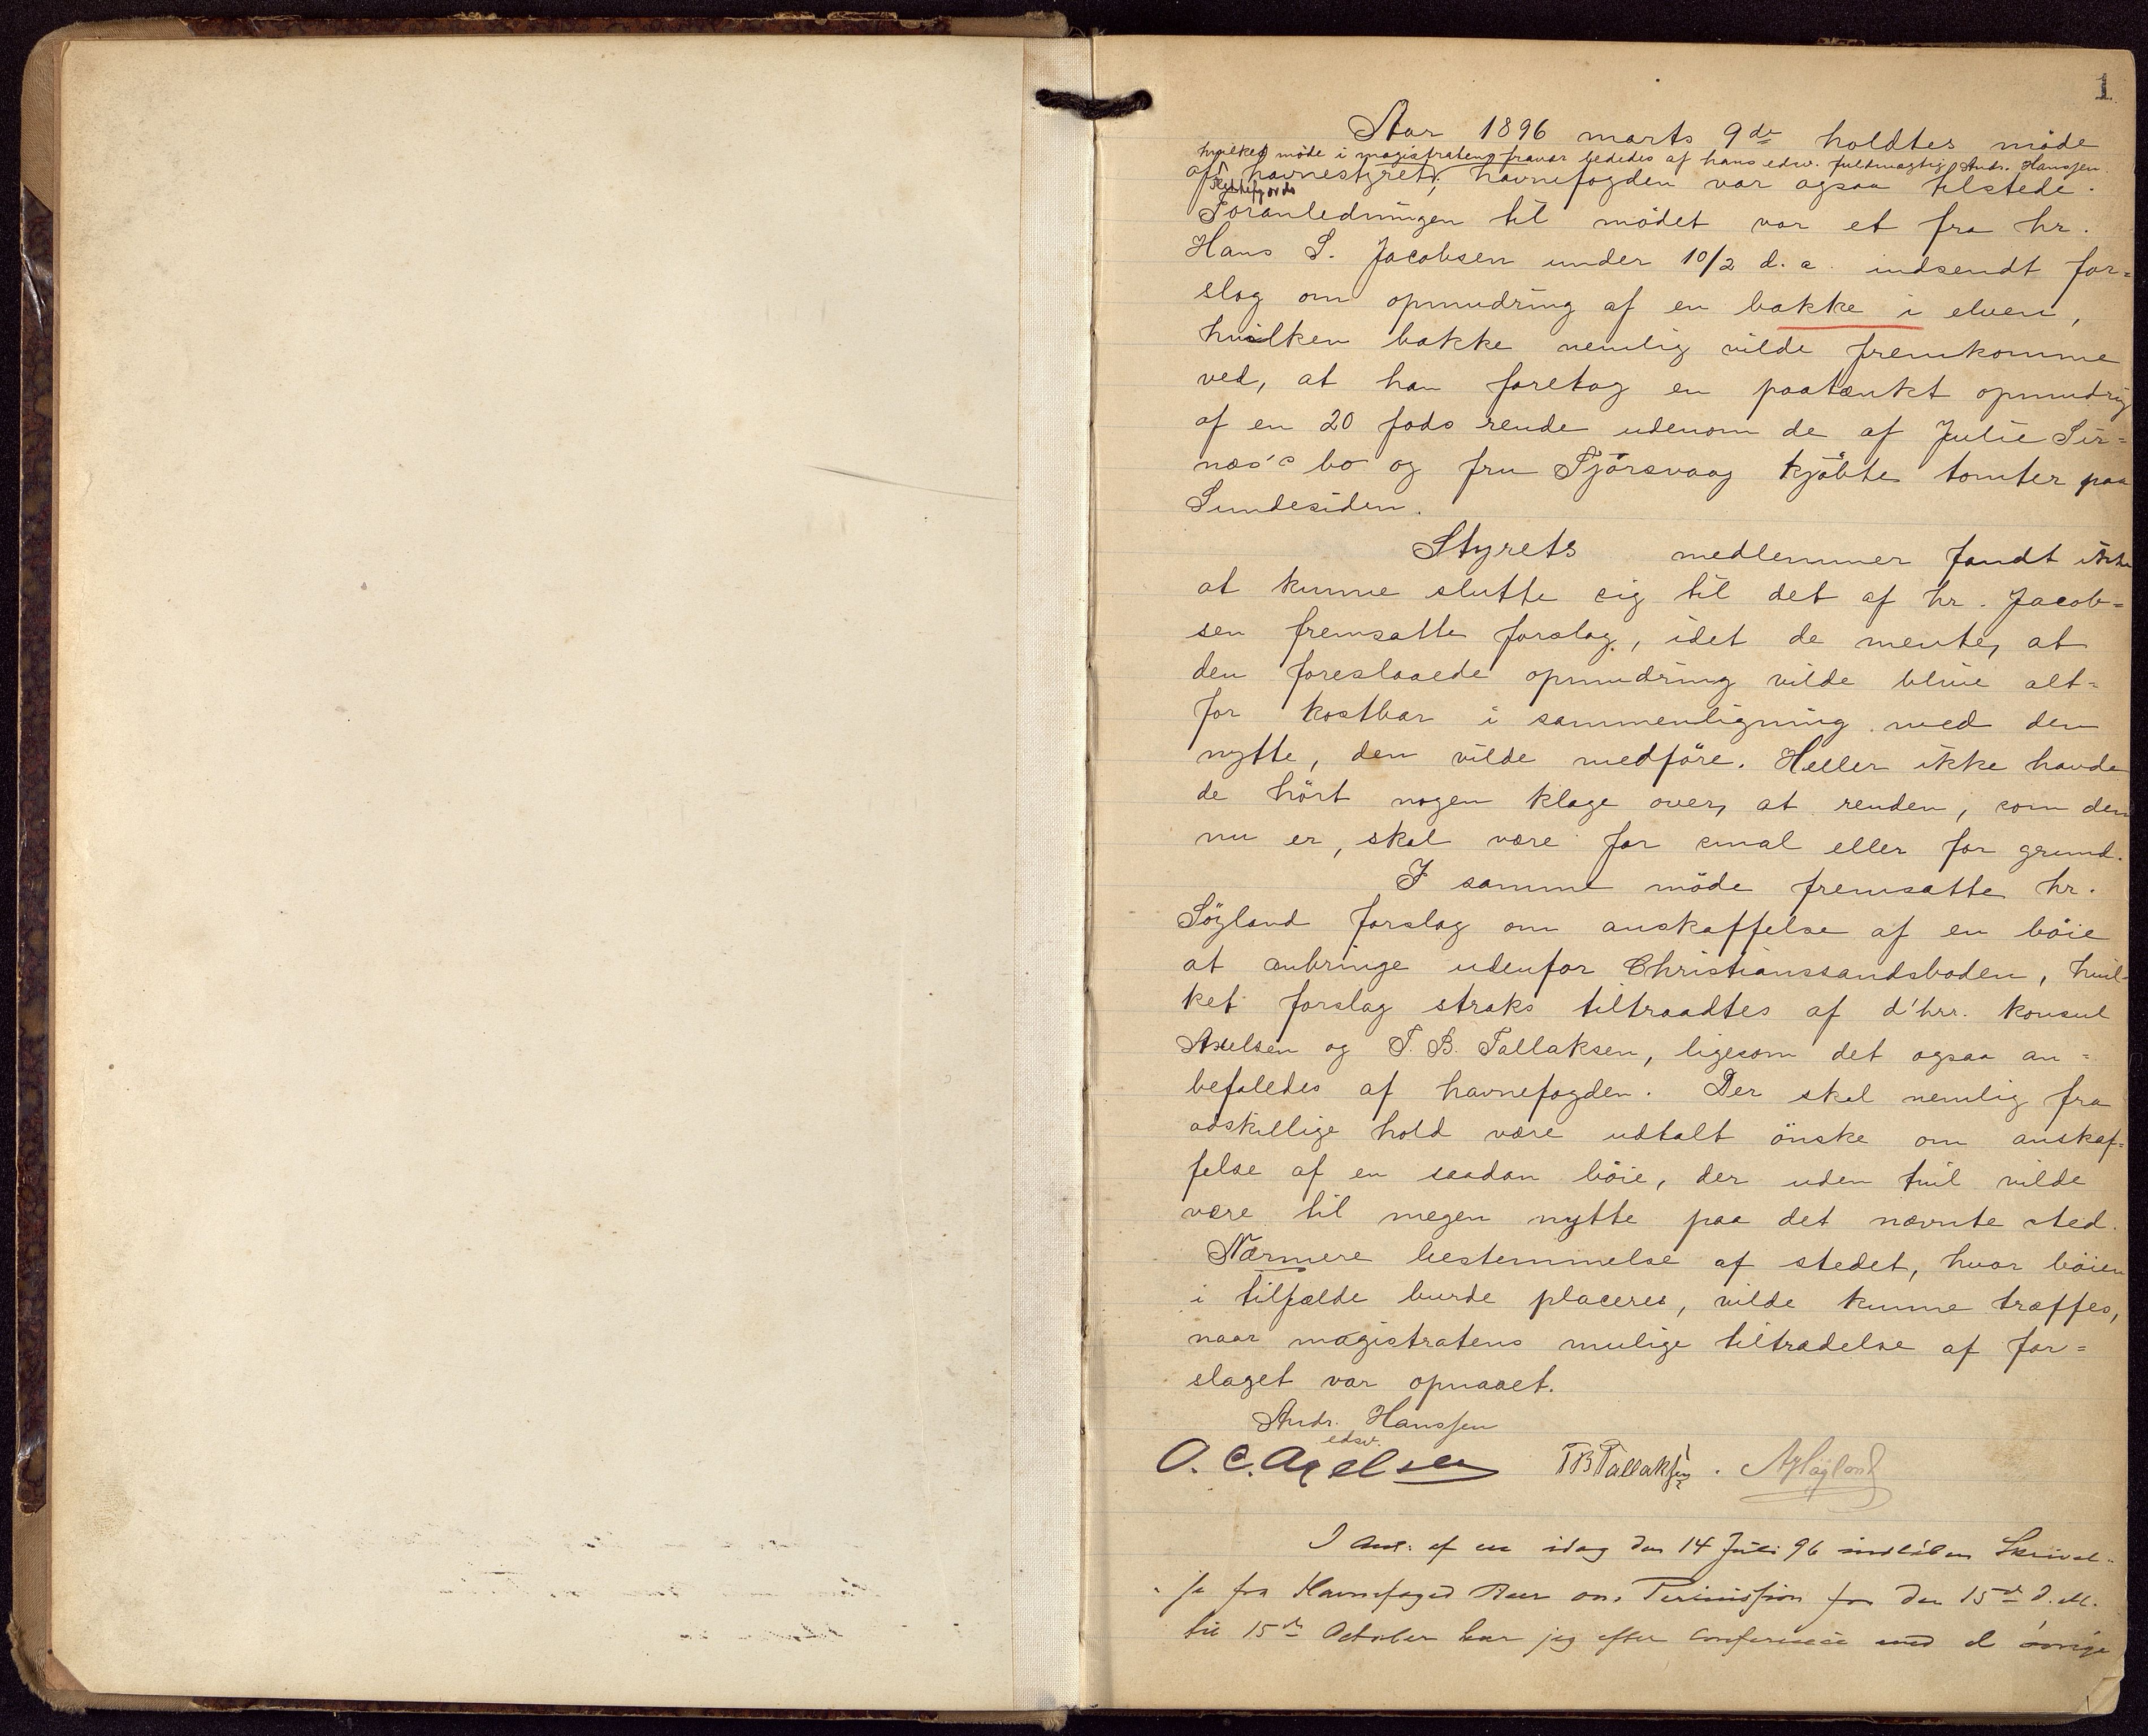 1
Aar 1896 marts 9de holdtes møde
hvilket møde i magistratens fravær lededes af hans edsv. fuldmægtig Andr. Hanssen.
af havnestyret; havnefogden var ogsaa tilstede.
Foranledningen til mødet var et fra hr.
Hans S. Jacobsen under 10/2 d. a. indsendt for=
slag om opmudring af en bakke i elven,
hvilken bakke nemlig vilde fremkomme
ved, at han foretog en paatænkt opmudrig
af en 20 fods rende udenom de af Julie Sir=
næs's bo og fru Tjörsvaag kjöbte tomter paa
Sundesiden.
Styrets medlemmer fandt ikke
at kunne slutte sig til det af hr. Jacob=
sen fremsatte forslag, idet de mente, at
den foreslaaede opmudring vilde blive alt=
for kostbar i sammenligning med den
nytte, den vilde medföre. Heller ikke havde
de hört nogen klage over, at renden, som den
nu er, skal være for smal eller for grund.
I samme möde fremsatte hr.
Sögland forslag om anskaffelse af en böie
at anbringe udenfor Christianssandsboden, hvil=
ket forslag straks tiltraadtes af d'hrr. konsul
Axelsen og T. B. Tallaksen, ligesom det ogsaa an=
befaledes af havnefogden. Der skal nemlig fra
adskillige hold være udtalt önske om anskaf=
felse af en saadan böie, der uden tvil vilde
være til megen nytte paa det nævnte sted.
Nærmere bestemmelse af stedet, hvor böien
i tilfælde burde placeres, vilde kunne træffes,
naar magistratens mulige tiltrædelse af for=
slaget var opnaaet.
Andr. Hanssen
edsv.
O. C. Axelsen TB Tallaksen.
I anl. af en idag den 14 Juli 96 indløben Skrivel-
se fra Havnefoged om Permission fra den 15de d. M.
til 15de October har jeg efter Conference med de øvrige